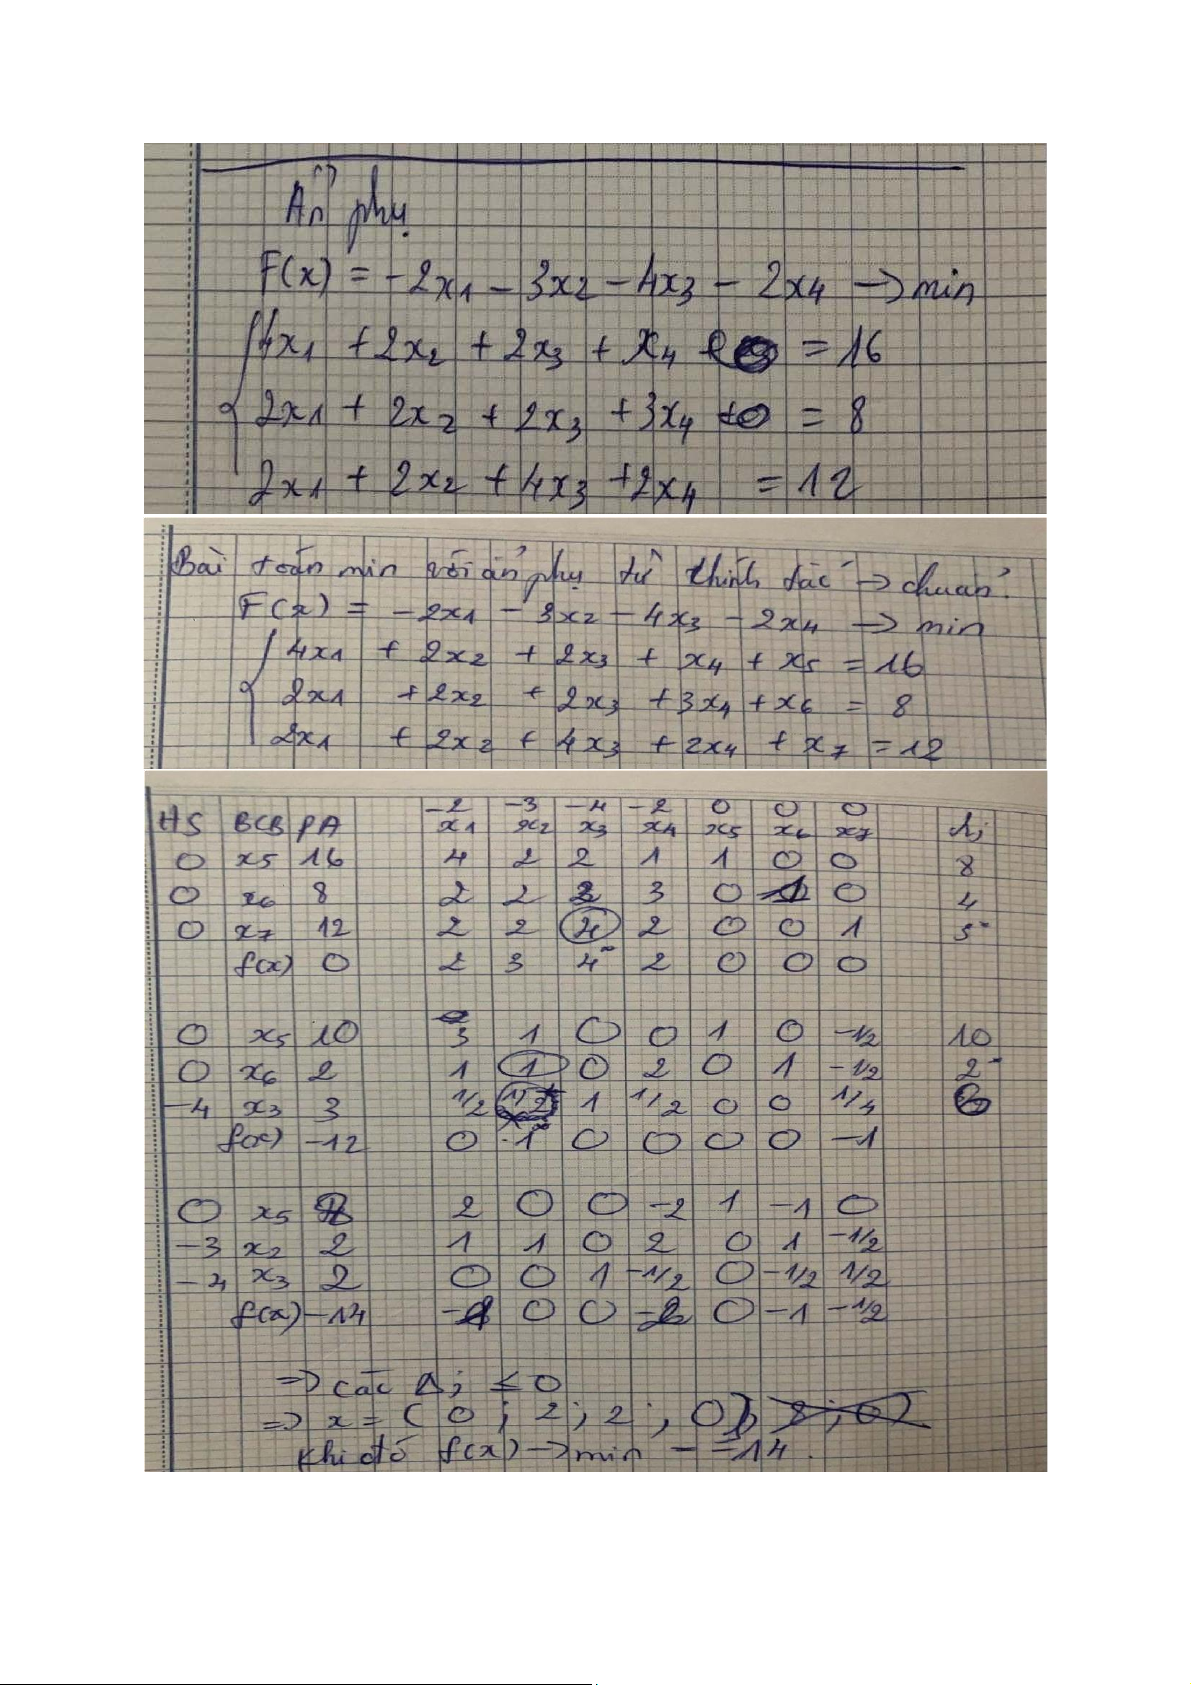 Ẩn phụ
F(x) = -2x1 - 3x2 - 4x3 - 2x4 → min
4x1 + 2x2 + 2x3 + x4 = 16
2x1 + 2x2 + 2x3 + 3x4 = 8
2x1 + 2x2 + 4x3 + 2x4 = 12
Bài toán min với ẩn phụ từ chính tắc → chuẩn.
F(x) = -2x1 - 3x2 - 4x3 - 2x4 → min
4x1 + 2x2 + 2x3 + x4 + x5 = 16
2x1 + 2x2 + 2x3 + 3x4 + x6 = 8
2x1 + 2x2 + 4x3 + 2x4 + x7 = 12
-2 -3 -4 -2 0 0 0
HS BCB PA x1 x2 x3 x4 x5 x6 x7 λj
0 x5 16 4 2 2 1 1 0 0 8
0 x6 8 2 2 2 3 0 1 0 4
0 x7 12 2 2 4 2 0 0 1 3
f(x) 0 2 3 4 2 0 0 0
0 x5 10 3 1 0 0 1 0 -1/2 10
0 x6 2 1 1 0 2 0 1 -1/2 2
-4 x3 3 1/2 1/2 1 1/2 0 0 1/4
f(x) -12 0 1 0 0 0 0 -1
0 x5 8 2 0 0 -2 1 -1 0
-3 x2 2 1 1 0 2 0 1 -1/2
-4 x3 2 0 0 1 -1/2 0 -1/2 1/2
f(x) -14 -1 0 0 -2 0 -1 -1/2
=> các Δj ≤ 0
=> x = (0; 2; 2; 0)
Khi đó f(x) → min = -14.